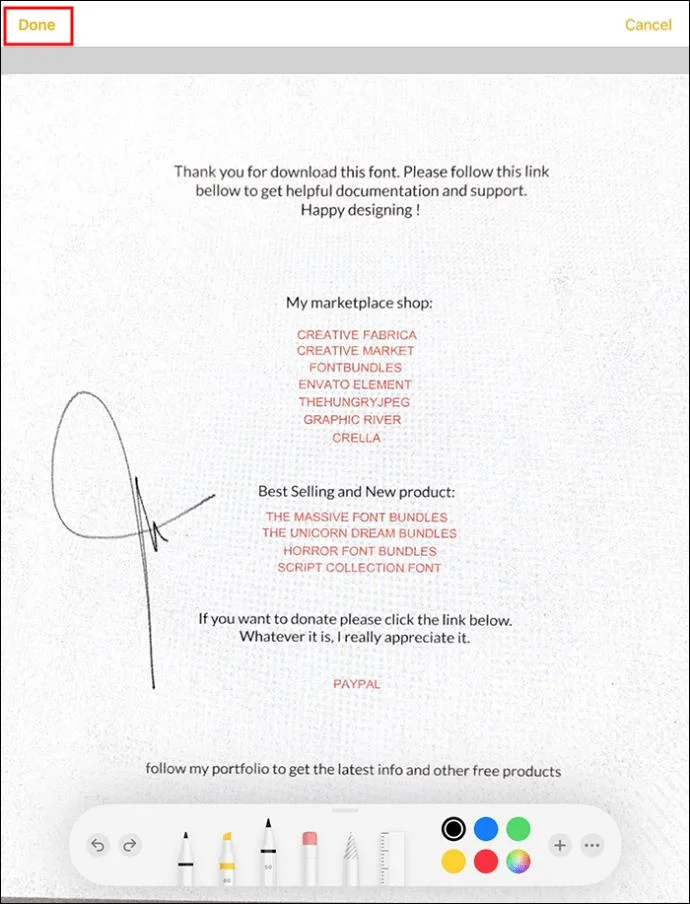 Done
Cancel
Thank you for download this font. Please follow this link
bellow to get helpful documentation and support.
Happy designing !
My marketplace shop:
CREATIVE FABRICA
CREATIVE MARKET
FONTBUNDLES
ENVATO ELEMENT
THEHUNGRYJPEG
GRAPHIC RIVER
CRELLA
Best Selling and New product:
THE MASSIVE FONT BUNDLES
THE UNICORN DREAM BUNDLES
HORROR FONT BUNDLES
SCRIPT COLLECTION FONT
If you want to donate please click the link below.
Whatever it is, I really appreciate it.
PAYPAL
follow my portfolio to get the latest info and other free products